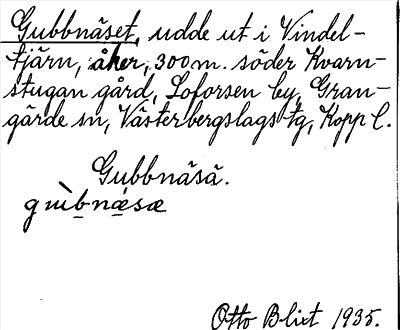 Gubbnäset, udde ut i Vindel-
tjärn, åker, 300 m. söder Kvarn-
stugan gård, Loforsen by, Gran-
gärde sn, Västerbergslags tg, Kopp l.
Gubbnäsä.
Otto Blixt 1935.